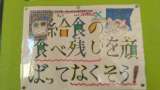 給食の
食べ残しを頑
ばってなくそう!